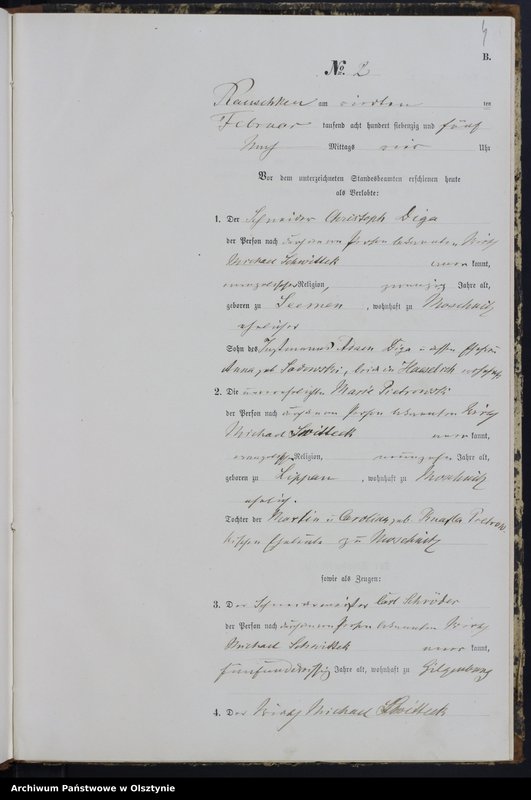 4
B.
No. 2
Rauschken am vierten ten
Februar tausend acht hundert siebenzig und fünf
Nach Mittags vier Uhr
Vor dem unterzeichneten Standesbeamten erschienen heute
als Verlobte:
1. Der Schneider Christoph Diga
der Person nach durch den Person bekannten Wirth
Michael Schwittek kannt,
evangelischer Religion, zwanzig Jahre alt,
geboren zu Seemen, wohnhaft zu Moschnitz
ehelicher
Sohn des Instmanns Adam Diga u dessen Ehefrau
Anna geb Sadowski, beide in
2. Die unverehelichte Marie Pietrowski
der Person nach durch den Person bekannten Wirth
Michael Switteck kannt,
evangelischer Religion, neunzehn Jahre alt,
geboren zu Lippau, wohnhaft zu Moschnitz
ehelich.
Tochter der Martin u Caroline geb
Eheleute zu Moschnitz
sowie als Zeugen:
3. Der Schneidermeister Carl Schröder
der Person nach durch den Person bekannten Wirth
Michael Schwittek kannt,
Jahre alt, wohnhaft zu Gilgenburg
4. Der Wirth Michael Switteck
Archiwum Państwowe w Olsztynie